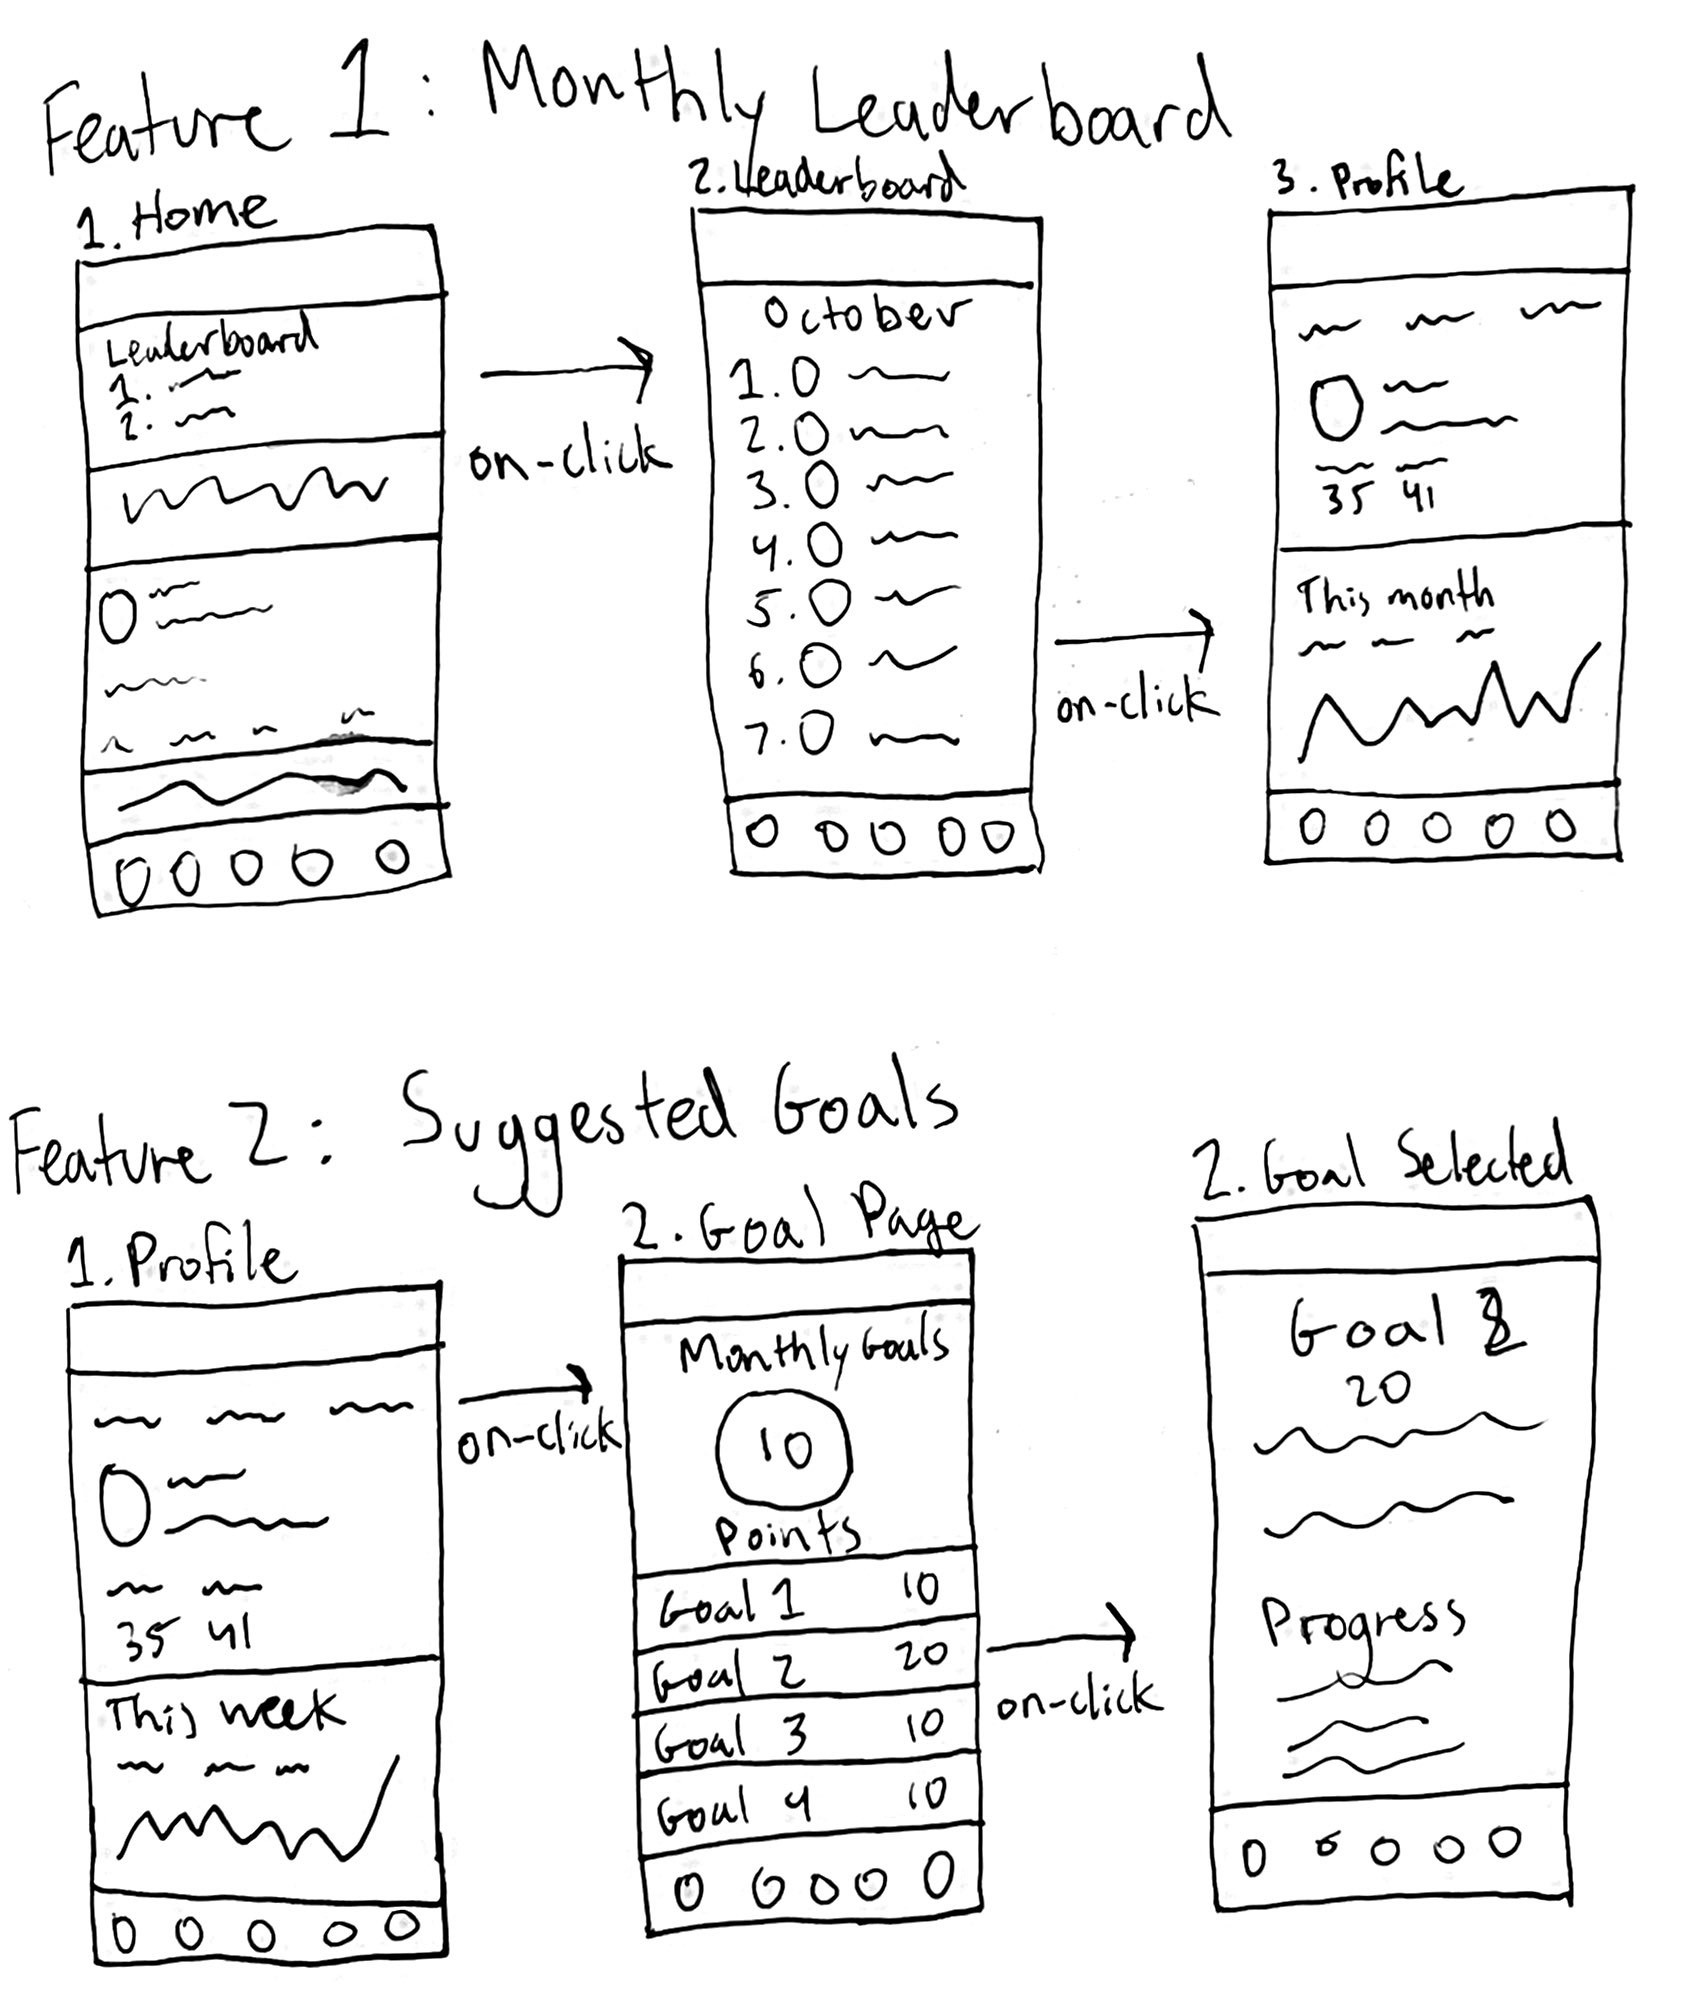 Feature 1: Monthly Leaderboard
1. Home
Leaderboard
1.
2.
on-click
2. Leaderboard
October
1.
2.
3.
4.
5.
6.
7.
on-click
3. Profile
35 41
This month
Feature 2: Suggested Goals
1. Profile
35 41
This week
on-click
2. Goal Page
Monthly Goals
10
Points
Goal 1 10
Goal 2 20
Goal 3 10
Goal 4 10
on-click
2. Goal Selected
Goal 2
20
Progress